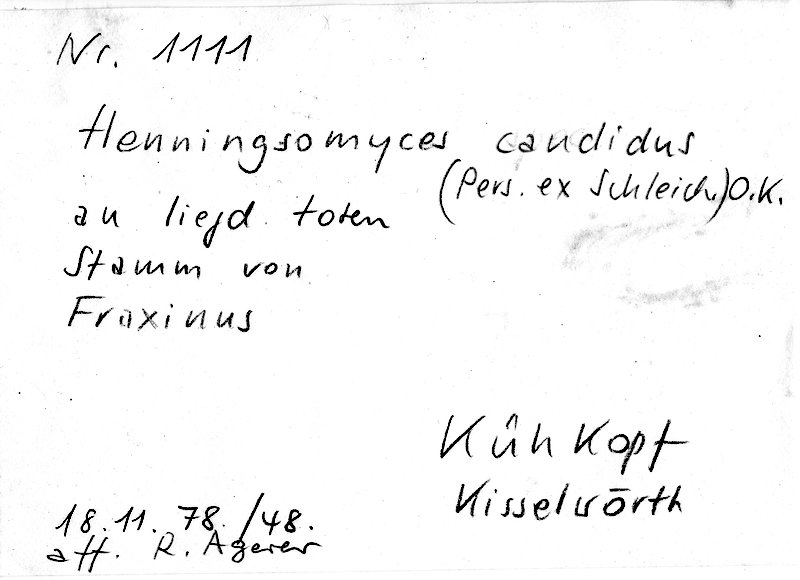 Nr. 1111
Henningsomyces candidus
(Pers. ex Schleich.) O.K.
an liegd toten
Stamm von
Fraxinus
Kühkopf
Kisselwörth
18.11.78./48.
att. R. Agerer